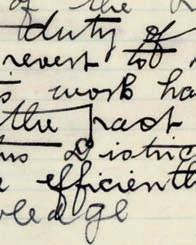 of the
duty of
revert to
s work ha
the past
s District
e efficientl
wledge